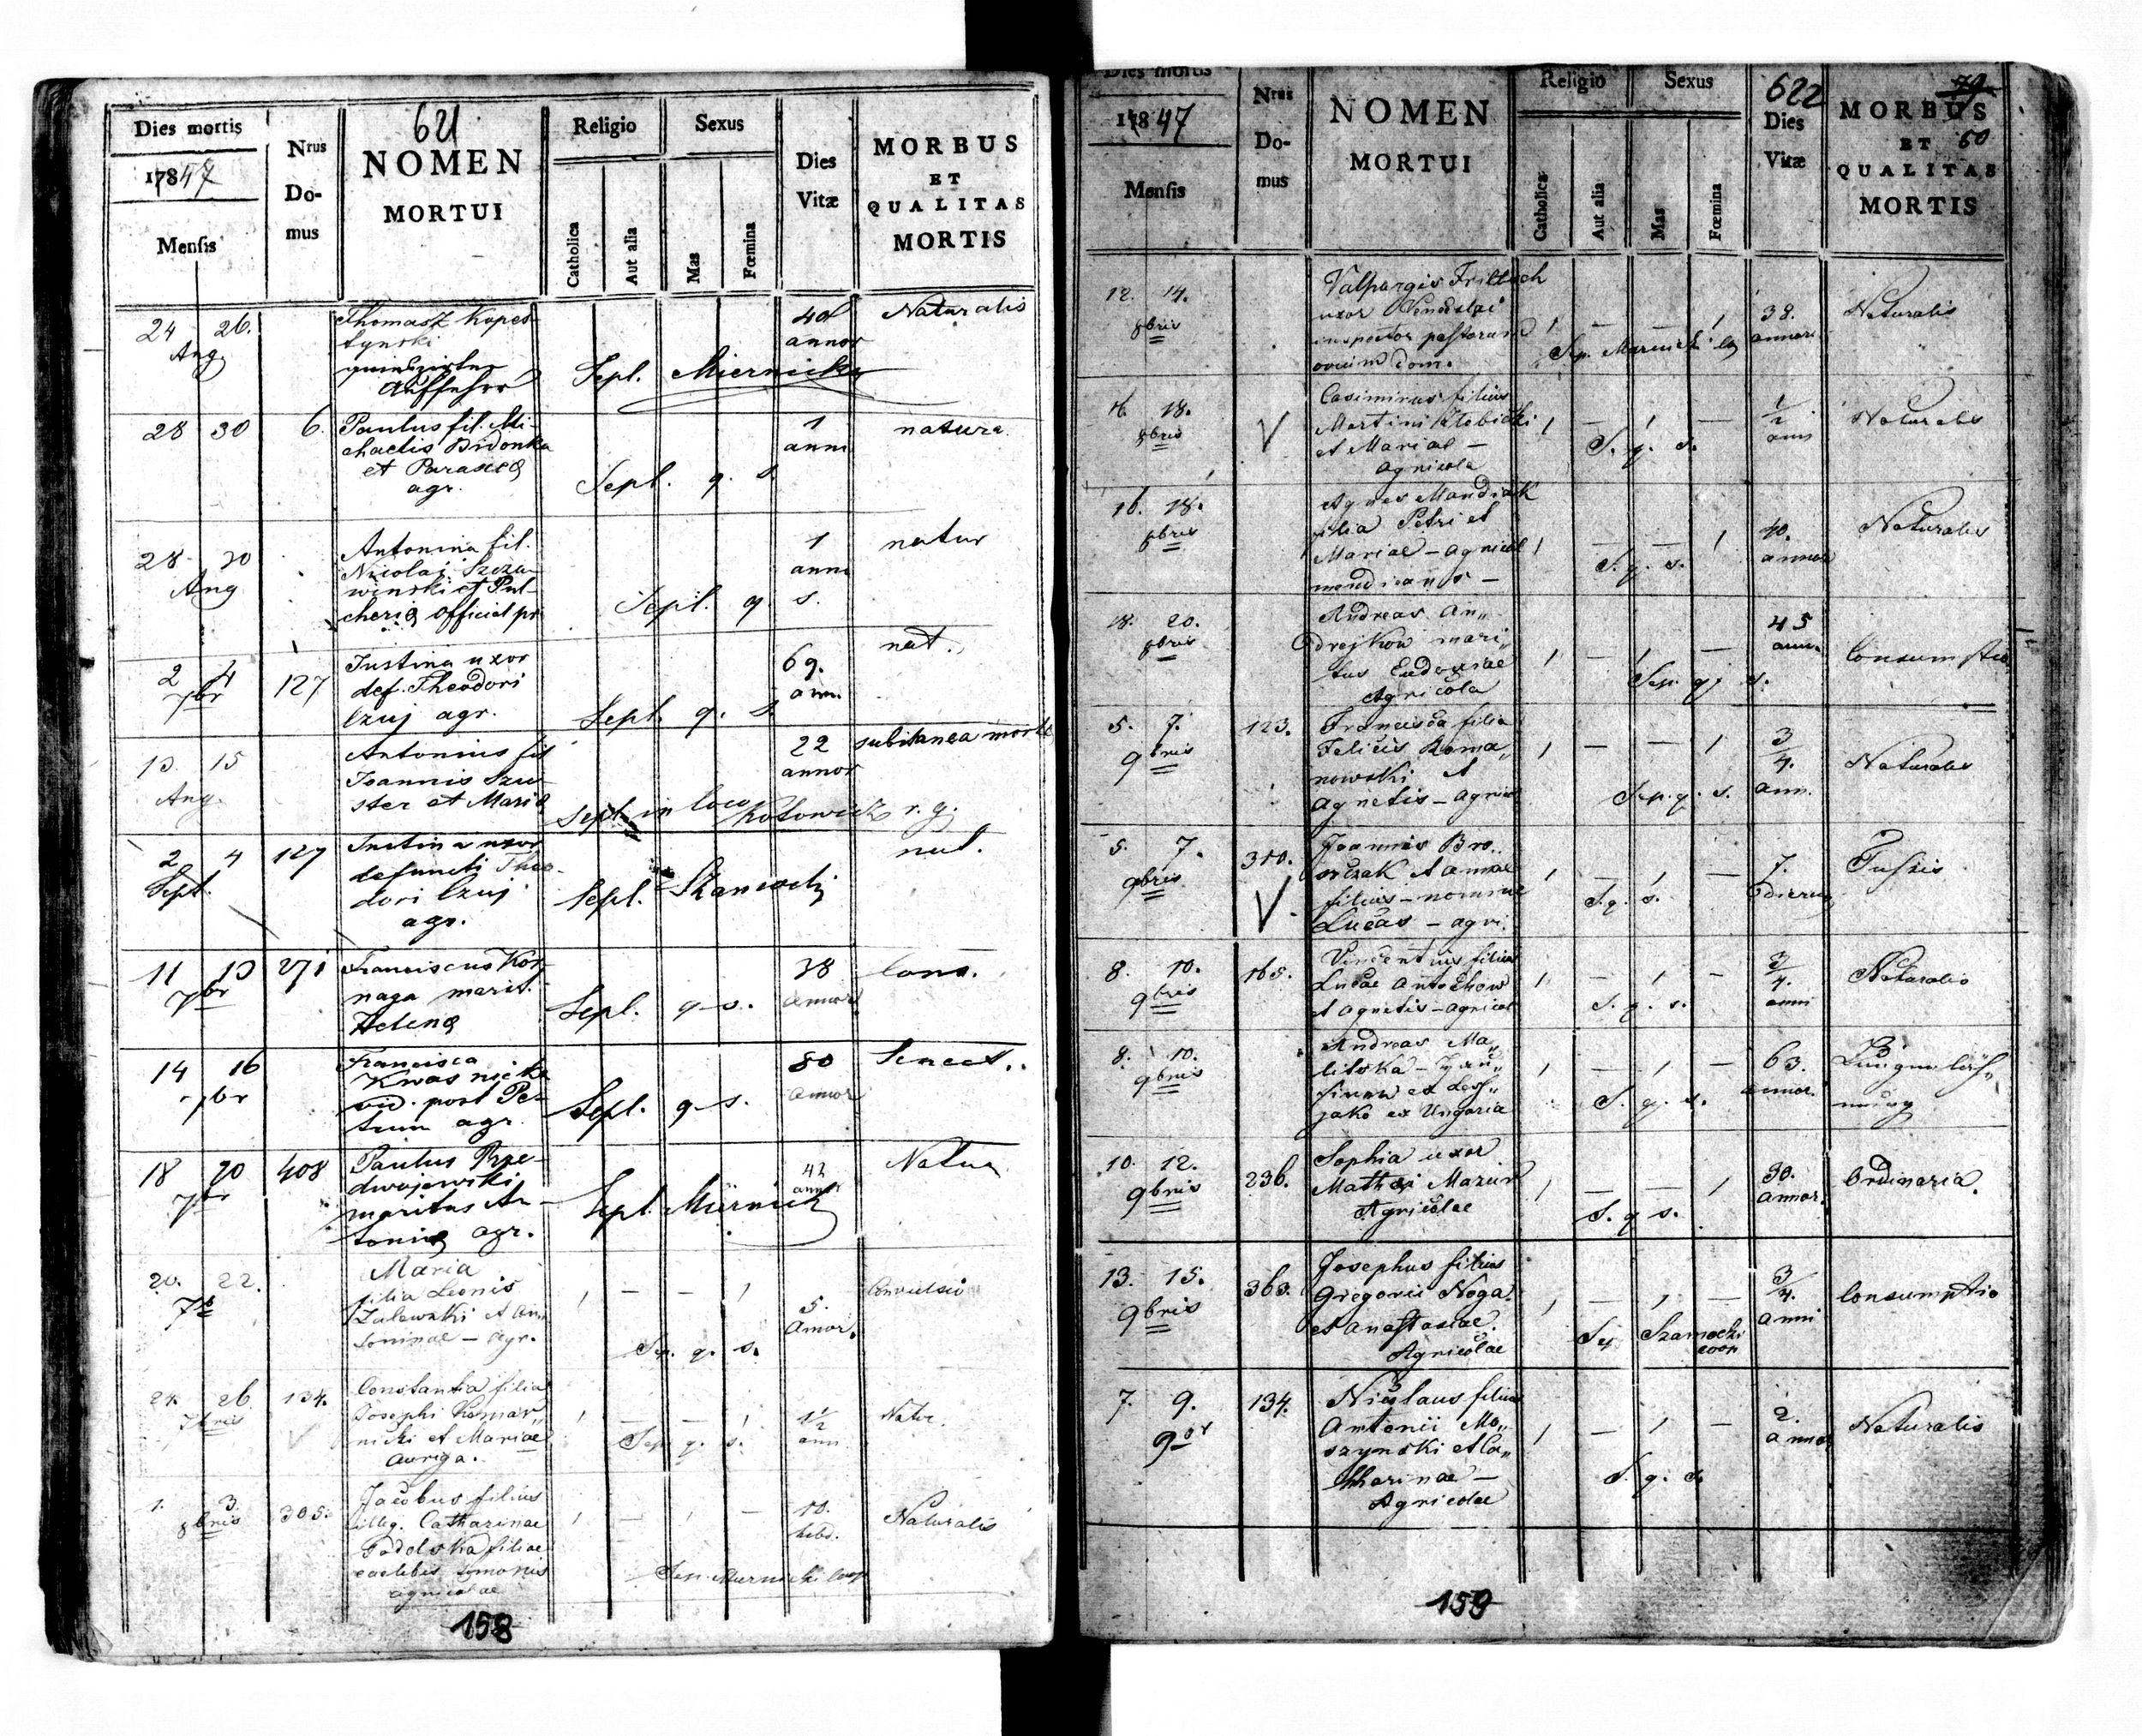 621
Dies mortis
1847
Mensis
Nrus
Do-
mus
NOMEN
MORTUI
Religio
Catholica
Aut alia
Sexus
Mas
Fœmina
Dies
Vitæ
MORBUS
ET
QUALITAS
MORTIS
24 26.
Aug
Thomasz Kopes-
tynski
Auffseher
Sepl. Miernicki
40
annor
Naturalis
28 30
6.
Paulus fil. Mi-
chaelis Bidonka
et Parasceæ
agr.
Sepl. q. s.
1
anni
natura.
28 30
Aug
Antonina fil.
Nicolai Szeza-
winski et Pul-
cheriæ official pr
Sepl. q. s.
1
anni
natur
2 4
7br
127
Justina uxor
def. Theodori
Czuj agr.
Sepl. q. s.
69.
ann.
nat.
13 15
Aug.
Antonius fil
Joannis Szu-
ster et Mariæ
Sepl. in loco Kotowicz r. g.
22
annor
subitanea morte
2 4
Sept.
127
Justina uxor
defuncti Theo-
dori Czuj
agr.
Sepl. Szamocki
nat.
11 13
7br
271
Franciscus Kor-
naga marit.
Helenæ
Sepl. q. s.
38
annor
Cons.
14 16
7br
Francisca
Kwasnicka
vid. post Pe-
trum agr.
Sepl. q. s.
80
annor
Senect.
18 20
7br
408
Paulus Prze-
dwojewski
maritus An-
toniæ agr.
Sepl. Miernicki
42
annor
Natur
20. 22.
7b
Maria
filia Leonis
Zalewski et An
toninae – agr.
/ – – /
Sep. q. s.
5.
annor.
Convulsio
24. 26.
7bris
134.
Constantia filia
Josephi Komar„
nicki et Mariae
auriga.
/ – – /
Sep. q. s.
1½
ann
Natur.
1. 3.
8bris
305.
Jacobus filius
illeg. Catharinae
Podolska filiae
caelibis Simonis
agricolae
/ – / –
Sep. Miernicki Coop
10.
hebd.
Naturalis
158
Dies mortis
1847
Mensis
Nrus
Do-
mus
NOMEN
MORTUI
Religio
Catholica
Aut alia
Sexus
Mas
Fœmina
622
Dies
Vitæ
79
MORBUS
ET 50
QUALITAS
MORTIS
12. 14.
8bris
Valpurgis Frittsch
uxor Venceslai
inspector pastorum
ovium dom.
/ – – /
38.
annor.
Naturalis
16. 18.
8bris
Casimirus filius
Martini Klobicki
et Mariae –
agricola
/ – / –
S. q. s.
½
anni
Naturalis
16. 18.
8bris
Agnes Mandziak
filia Petri et
Mariae – agricol
mendicans –
/ – – /
S. q. s.
40.
annor
Naturalis
18. 20.
8bris
Andreas An„
drejkow mari„
tus Eudoxiae
Agricola
/ – / –
Sep. q. s.
45
anno
Consumptio
5. 7.
9bris
123.
Francisca filia
Felicis Roma„
nowski et
Agnetis – agricol
/ – – /
Sep. q. s.
¾.
ann.
Naturalis
5. 7.
9bris
310.
Joannis Bro„
szczak et Annae
filius – nomine
Lucas – agri.
/ – / –
S. q. s.
7.
dierum
Tussis
8. 10.
9bris
165.
Vincentius filius
Lucae Antochow
et Agnetis – agricol
/ – / –
S. q. s.
¾.
anni
Naturalis
8. 10.
9bris
Andreas Ma„
litska –
ex Ungaria
/ – / –
S. q. s.
63.
annor.
Lungen läh„
mung
10. 12.
9bris
236.
Sophia uxor
Mathæi Mazur
Agricolae
/ – – /
S. q. s.
30.
annor.
Ordinaria.
13. 15.
9bris
363.
Josephus filius
Gregorii Noga
et Anastasiae.
Agricolae
/ – / –
Sep. Szamocki
coop
¾.
anni
Consumptio
7. 9.
9br
134.
Nicolaus filius
Antonii Mo„
szynski et Ca„
tharinae –
Agricolae
/ – / –
S. q. s.
2.
anno
Naturalis
159